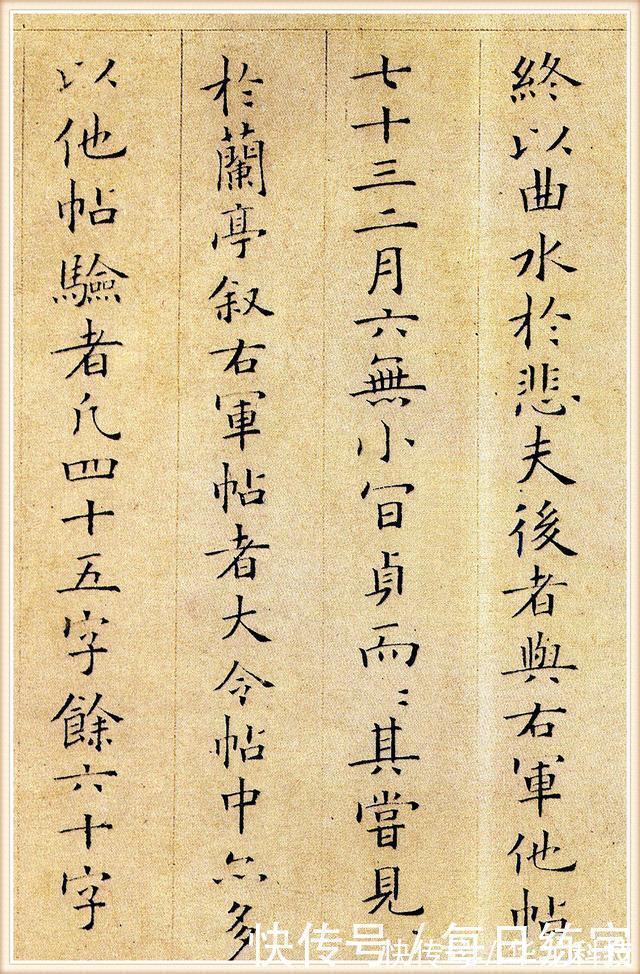 終以曲水於悲夫後者與右軍他帖
七十三二月六無小貞而〻其嘗見
於蘭亭叙右軍帖者大令帖中亦多
以他帖驗者凡四十五字餘六十字
快传号/每日练字